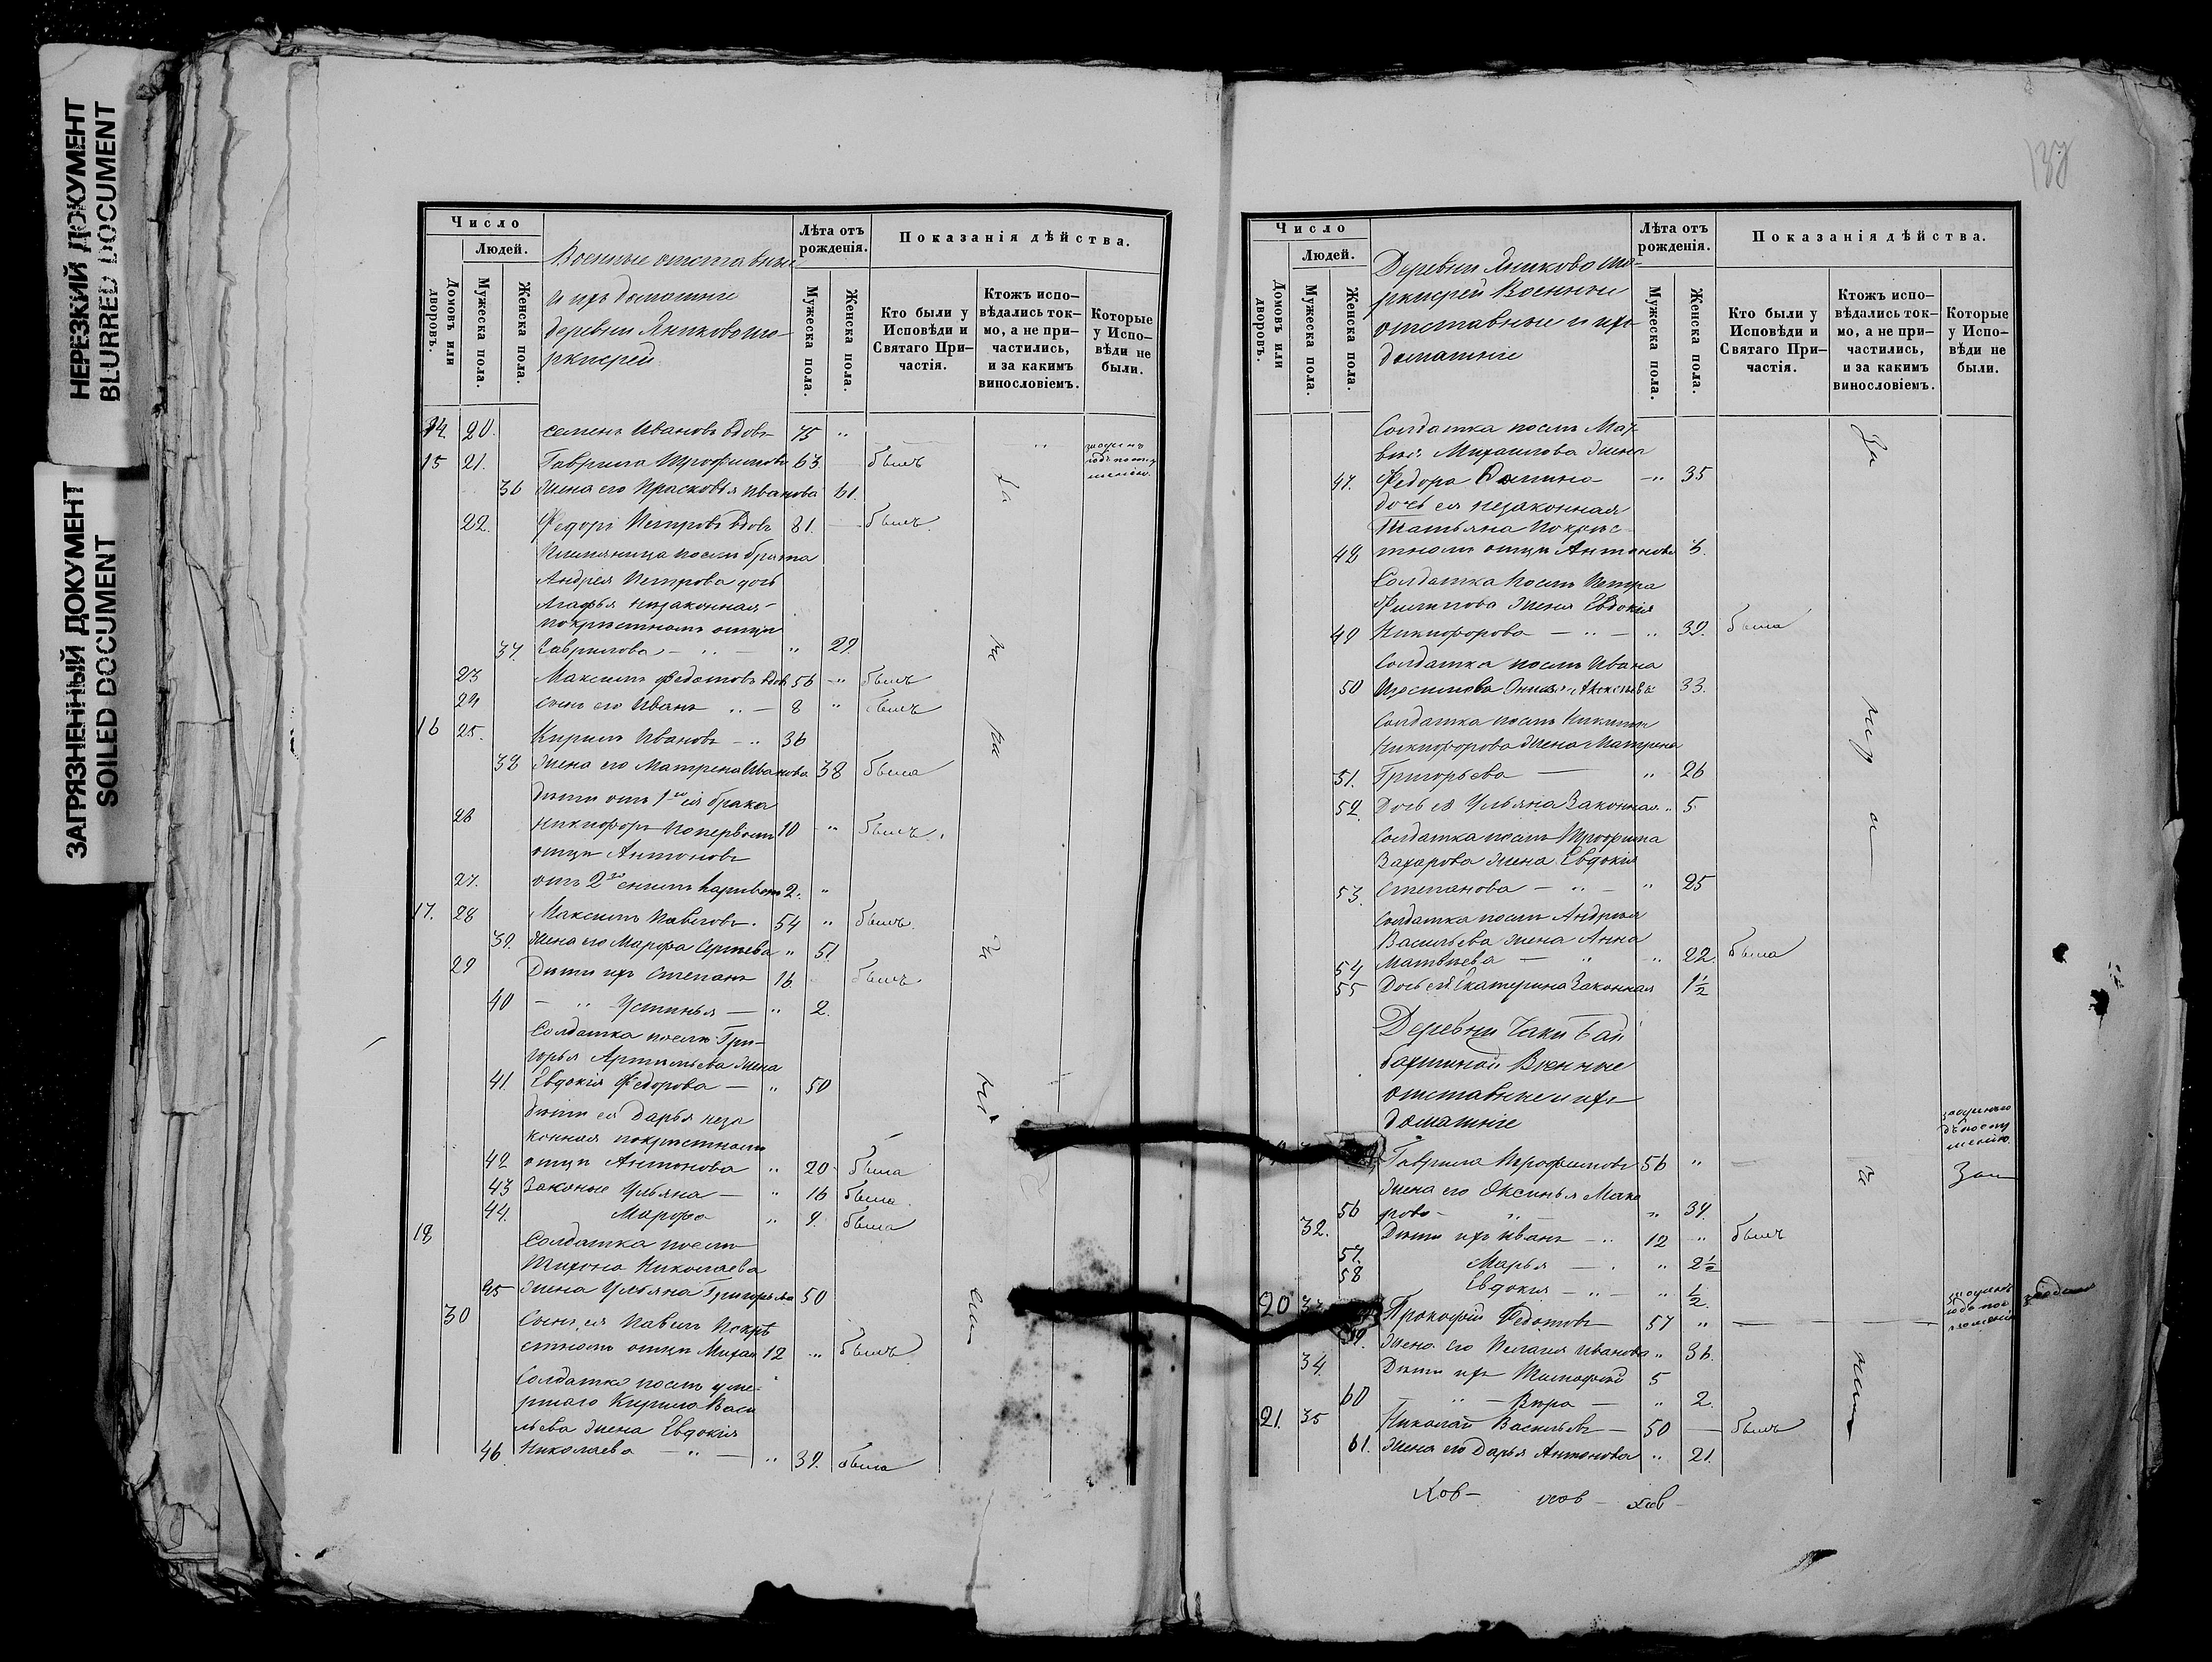 НЕРЕЗКИЙ ДОКУМЕНТ
BLURRED DOCUMENT
ЗАГРЯЗНЕННЫЙ ДОКУМЕНТ
SOILED DOCUMENT
Число
Людей.
Домовъ или дворовъ.
Мужеска пола.
Женска пола.
Военные отставные
и ихъ домашніе
деревни Яниково шо-
ркисрей
Лѣта отъ рожденія.
Мужеска пола.
Женска пола.
Показанія дѣйства.
Кто были у Исповѣди и Святаго При-
частія.
Ктожъ испо-
вѣдались ток-
мо, а не при-
частились,
и за какимъ
винословіемъ.
Которые
у Испо-
вѣди не
были.
14. 20. Семенъ Ивановъ вдовъ 75 "
15 21. Гаврила Трофимовъ 63 былъ
36 Жена его Прасковья Иванова 61.
22. Федоръ Петровъ вдовъ 81. былъ
Племяница посли брата
Андрея Петрова дочь
Агафья незаконная
покрестномъ отцу
37. Гаврилова — " — " 29.
23 Максимъ Федотовъ вдовъ 56 " былъ
24 сынъ его Иванъ " — 8 " былъ
16 25. Кирилъ Ивановъ — " 36
38 Жена его Матрена Иванова 38 была
Дѣти отъ 1го ея брака
26 Никифоръ попервому 10 " былъ
отцу Антоновъ
27. отъ 2го 2. "
17. 28 Максимъ Павловъ. 54 " былъ.
39. Жена его Марфа Сергеева " 51
29 Дѣти ихъ Степанъ 16 былъ.
40 — " Устинья — " 2.
Солдатка посли Гри-
горья Артемьева жена
41. Евдокія Федорова — " 50
Дѣти ея Дарья неза
конная покрестному
42 отцу Антонова " 20 была
43 Законые Ульяна — " 16 была.
44. Марфа " 9. была
18 Солдатка посли
Тихона Николаева
45 жена Ульяна Григорьева 50
30 Сынъ ея Павелъ Покрѣ
стному отцу Михаи 12 " былъ
Солдатка посли уме-
ршаго Кирила Васи
льева жена Евдокія
46. Николаева — " — " 39. была
137
Число
Людей.
Домовъ или дворовъ.
Мужеска пола.
Женска пола.
Деревни Яниково шо-
ркисрей Военные
отставные и ихъ
домашніе
Лѣта отъ рожденія.
Мужеска пола.
Женска пола.
Показанія дѣйства.
Кто были у Исповѣди и Святаго При-
частія.
Ктожъ испо-
вѣдались ток-
мо, а не при-
частились,
и за какимъ
винословіемъ.
Которые
у Испо-
вѣди не
были.
Солдатка посли Мат
вея Михаилова жена
47. Федора — " 35
дочь ея незаконная
Татьяна Покрес
48 тному отцу Антонова 6.
Солдатка посли Петра
Филипова жена Евдокія
49 Никифорова — " — " 39. была
Солдатка посли Ивана
50 33.
Солдатка посли Никиты
Никифорова жена Матрена
51. Григорьева — " 26
52. Дочь ея Ульяна Законная " 5
Солдатка посли Трофима
Захарова жена Евдокія
53. Степанова — " — " 25
Солдатка посли Андрея
Васильева жена Анна
54 Матвѣева — " — " 22. была
55 Дочь ея Екатерина Законная 1½
Деревни Чаки Бай
бахтиной Военные
отставные и ихъ
домашніе
Гаврила Трофимовъ 56 "
Жена его Оксинья Мака
56 рова — " — " 39.
32. Дѣти ихъ Иванъ — " 12 " былъ
57. Марья — " 2½
58 Евдокія — " — " ½
20 33 Прокофій Федотовъ 57 "
59. Жена его Пелагея Иванова " 36.
34. Дѣти ихъ Тимофей 5
60 — " — Вѣра — " 2.
21. 35 Николай Васильевъ — 50 — былъ
61. Жена его Дарья Антонова " 21.